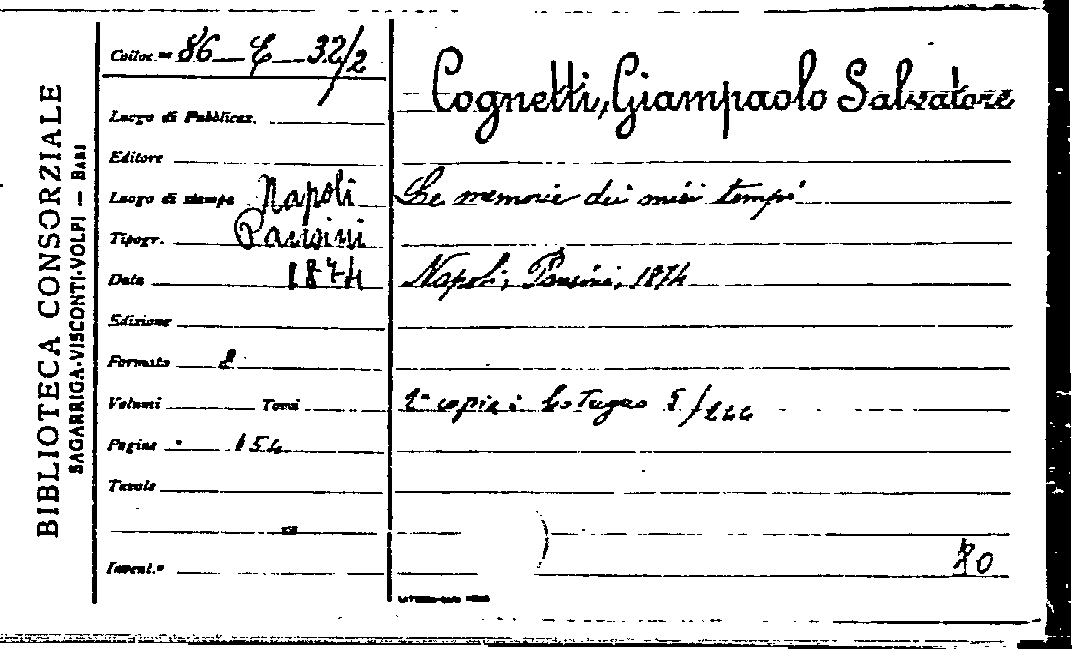 BIBLIOTECA CONSORZIALE
SAGARRIGA-VISCONTI-VOLPI — BARI
Colloc.ne 86 — E — 32/2
Luogo di Pubblicaz.
Editore
Luogo di stampa Napoli
Tipogr. Pansini
Data 1874
Edizione
Formato 8
Volumi Tomi
Pagine 154
Tavole
Invent.o
Cognetti, Giampaolo Salvatore
Le memorie dei miei tempi
Napoli, Pansini, 1874
2ª copia: